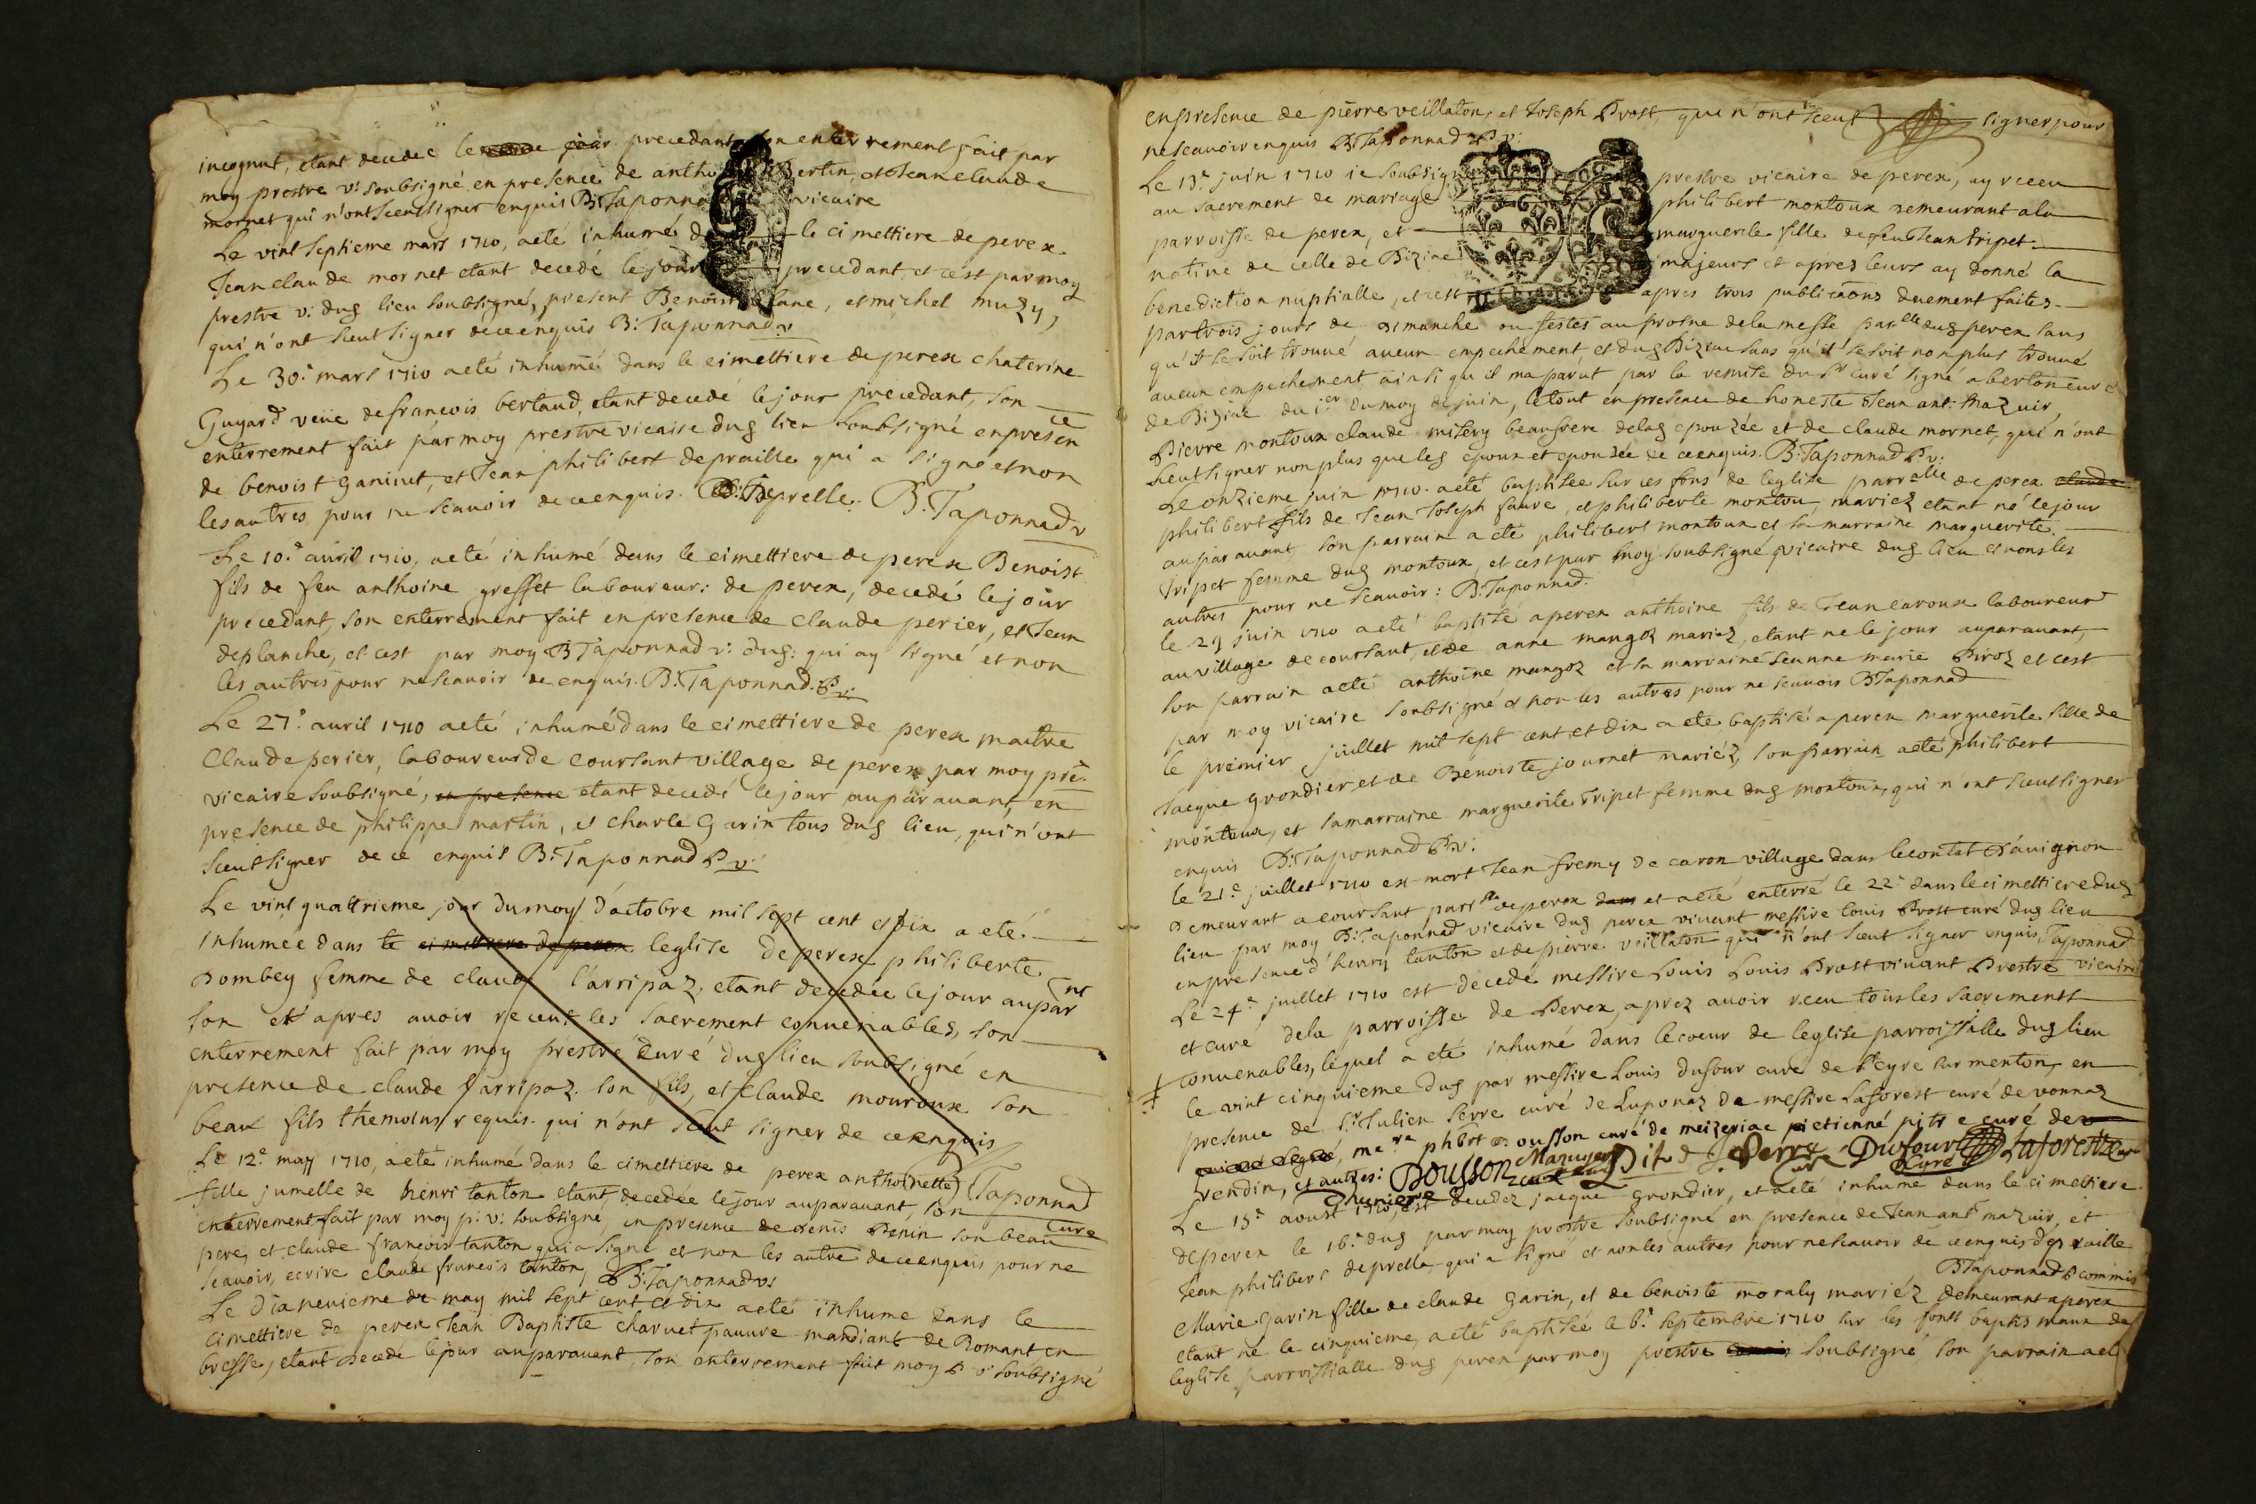 incognut, etant decedeé le jour precedant son enterrement fait par
moy prestre v: soubsigné en presence de antho Bertin, et Jean claude
mornet qui n'ont sceut signer enquis B: Taponnad vicaire
Le vint septieme mars 1710, aeté inhumé d le cimettiere de perex
Jean claude mornet etant decedé le jour precedant et cest par moy
prestre v: dug lieu soubsigné, present Benoist lane, et michel muzy,
qui n'ont sceut signer de ce enquis B: Taponnad v
Le 30.e mars 1710 aeté inhumé dans le cimettiere de perex chaterine
Guyard veüe de françois bertaud, etant decedé le jour precedant, son
enterrement fait par moy prestre vicaire dug lieu soubsigné en presence
de benoist Ganinet, et Jean philibert depraille qui a signé et non
les autres pour ne scavoir de ce enquis. Deprelle. B: Taponnad v
Le 10.e auril 1710, aeté inhumé dans le cimettiere de perex Benoist
fils de feu anthoine gresset laboureur: de perex, decedé le jour
precedant, son enterrement fait en presence de claude perier, et Jean
deplanche, et cest par moy B Taponnad v: dug: qui ay signé et non
les autres pour ne scavoir de enquis. B: Taponnad. P v:
Le 27.e auril 1710 aeté inhumé dans le cimettiere de perex maitre
Claude perier, laboureur de coursant village de perex par moy pre.
vicaire soubsigné, en presence etant decedé le jour auparauant, en
presence de philippe martin, et charle Garin tous dug lieu, qui n'ont
sceut signer de ce enquis B: Taponnad P v:
Le vint quattrieme jour du moy d'actobre mil sept cent et dix a eté
inhumée dans le cimettiere de perex leglise de perex philiberte
Dombey femme de claude l'arripaz, etant decedée le jour aupar nt
son et apres avoir receut les sacrement convenables, son
enterrement fait par moy prestre Curé dug lieu soubsigné en
presence de claude larripaz. son fils, et claude mouroux son
beau fils themoins requis. qui n'ont sceut signer de ce enquis
Taponnad
Curé
Le 12.e may 1710, aeté inhumé dans le cimettiere de perex anthoinette
fille jumelle de henri tanton etant decedée le jour auparavant, son
enterrement fait par moy p: v: soubsigné, en presence de denis Benin son beau
pere, et claude françois tanton qui a signé et non les autre de ce enquis pour ne
scavoir, ecrire claude francois tanton, B: Taponnad v
Le dixneuieme de may mil sept cent et dix aeté inhume dans le
cimettiere de perex Jean Baptiste charuet pauure mandiant de Romant en
bresse, etant decedé le jour auparavant, son enterrement fait moy P v: soubsigné
en presence de pierre veillaton, et Joseph Prost qui n'ont sceut signer pour
ne scavoir enquis B: Taponnad P v:
Le 13.e juin 1710 ie soubsig prestre vicaire de perex, ay receu
au sacrement de mariage philibert montoux demeurant a la
parroisse de perex, et marguerite fille de feu Jean tripet
native de celle de Biziac majeurs et apres leurs ay donné la
benediction nuptialle, et cest apres trois publicãons duement faites
par trois jours de dimanche ou festes au prosne de la messe parelle dug perex sans
qu'il se soit trouué aucun empechement, et dug Biziac sans qu'il se soit non plus trouué
aucun empechement ainsi qu il ma parut par la remise du Sr curé signé aberton curé
de Biziac du 1er du moy de juin, le tout en presence de honeste Jean ant: mazuir,
Pierre montoux claude misery beaufrere de lag epouzée et de claude mornet, qui n'ont
sceut signer non plus que les epoux et epouzée de ce enquis. B: Taponnad P v:
Le onzieme juin 1710. aeté baptisée sur les fons de leglise parralle de perex claude
philibert fils de Jean Joseph faure, et philiberte montou, mariez etant né le jour
auparauant, son parrain a eté philibert montoux et sa marraine marguerite
tripet femme dug montoux, et cest par moy soubsigné vicaire dug lieu et non les
autres pour ne scavoir: B: Taponnad.
le 29 juin 1710 aeté baptisé a perex anthoine fils de Jean caroux laboureur
au village de coursant, et de anne mangoz mariez, etant ne le jour auparavant,
son parrain aeté anthoine mangoz et sa marraine Jeanne marie Piroz et cest
par moy vicaire soubsigné et non les autres pour ne scavoir B Taponnad
le premier juillet mil sept cent et dix a eté baptisé a perex marguerite fille de
Jacque Grondier, et de Benoiste journet mariéz, son parrain aeté philibert
montoux, et sa marraine marguerite Tripet femme dug montoux, qui n ont sceut signer
enquis B: Taponnad P v:
le 21e juillet 1710 ex mort Jean fremy de caron village dans le contat d'avignon
demeurant a coursant parslle de perex dans et aeté enterré le 22e dans le cimettiere dug
lieu par moy B: Taponnad vicaire dug perex vivant messire louis Prost curé dug lieu
en presence d'henry tanton et de pierre veillaton qui n'ont sceut signer enquis Taponnad
vicaire
Le 24.e juillet 1710 est decede messire Louis Louis Prost vivant Prestre
et curé de la parroisse de Perex, aprez avoir receu tous les sacrements
convenables, lequel a eté inhumé dans le coeur de leglise parroissille dug lieu
le vint cinquieme dug par messire Louis dufour curé de St Cyre sur menton, en
presence de Sr Julien Serre curé de Luponaz de messire Laforest curé de vonnaz
me re phbt Bousson curé de meizeriac pietienné pitr e curé de
vendin, et autres: Bousson Mazuyer Pit Serre Dufour Curé Laforest Curé
Le 15.e aoust 1710, est decedez jacque Grondier, et aeté inhumé dans le cimettiere
de perex le 16.e dug par moy prestre soubsigné en presence de Jean ant mazuir, et
Jean philibert deprelle qui a signé et non les autres pour ne scavoir de ce enquis depraille
B Taponnad P commis
Marie Garin fille de claude Garin, et de benoiste moraly mariéz demeurant a perex
etant né le cinquieme, aeté baptisée le 6.e septembre 1710 sur les fonts baptismaux de
leglise parroissialle dug perex par moy prestre soubsigné, son parrain aet